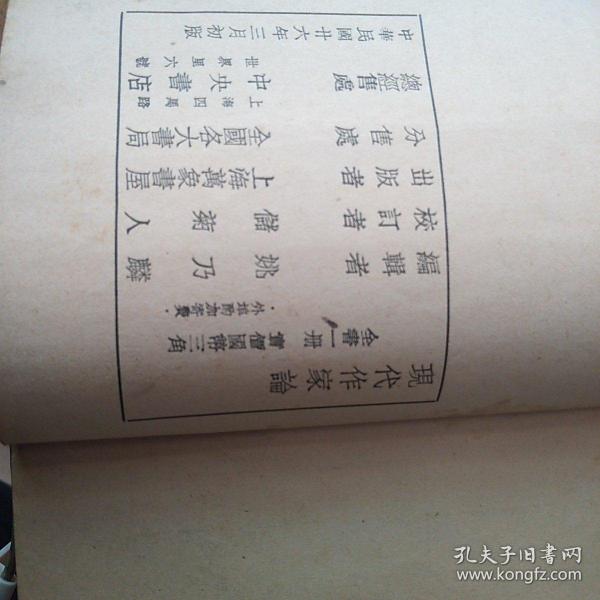 現代作家論
全書一册
實價國幣三角
・外埠酌加寄費・
編輯者 姚乃麟
校訂者 儲菊人
出版者 上海萬象書屋
分售處 全國各大書局
總經售處 中央書店
上海四馬路
世界里六號
中華民國廿六年三月初版
孔夫子旧书网
www.kongfz.com